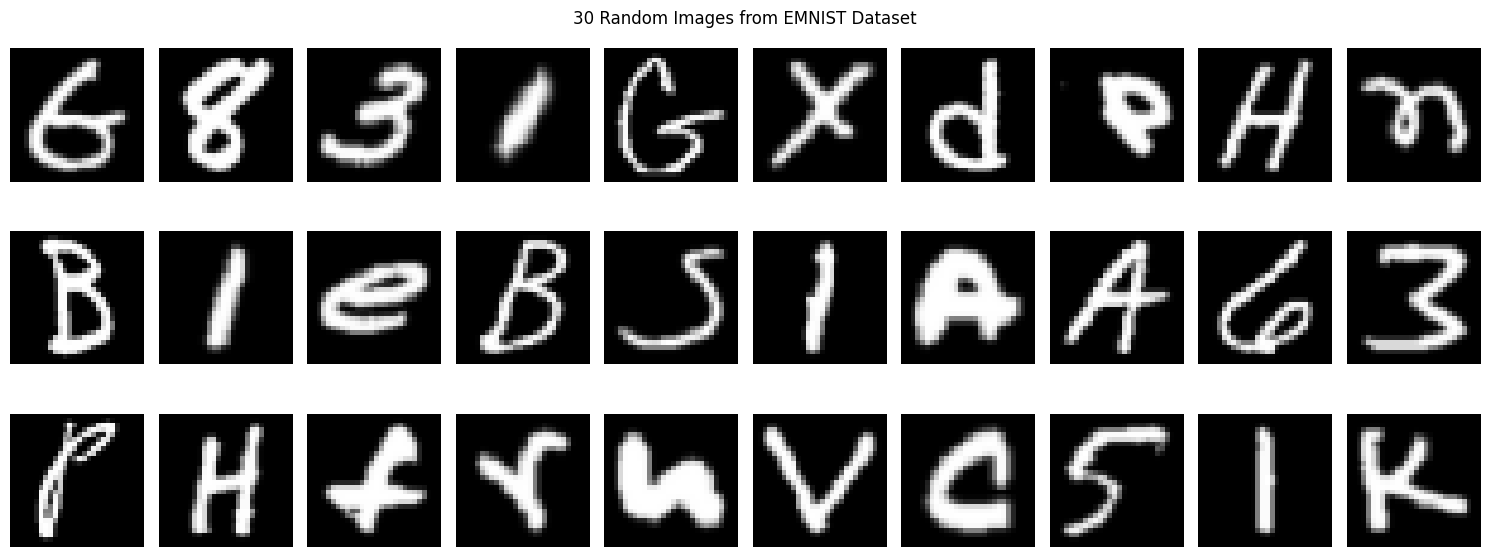 30 Random Images from EMNIST Dataset
G 8 3 1 G X d e H n
B 1 e B S 1 A A 6 3
r H t r n V C 5 1 K